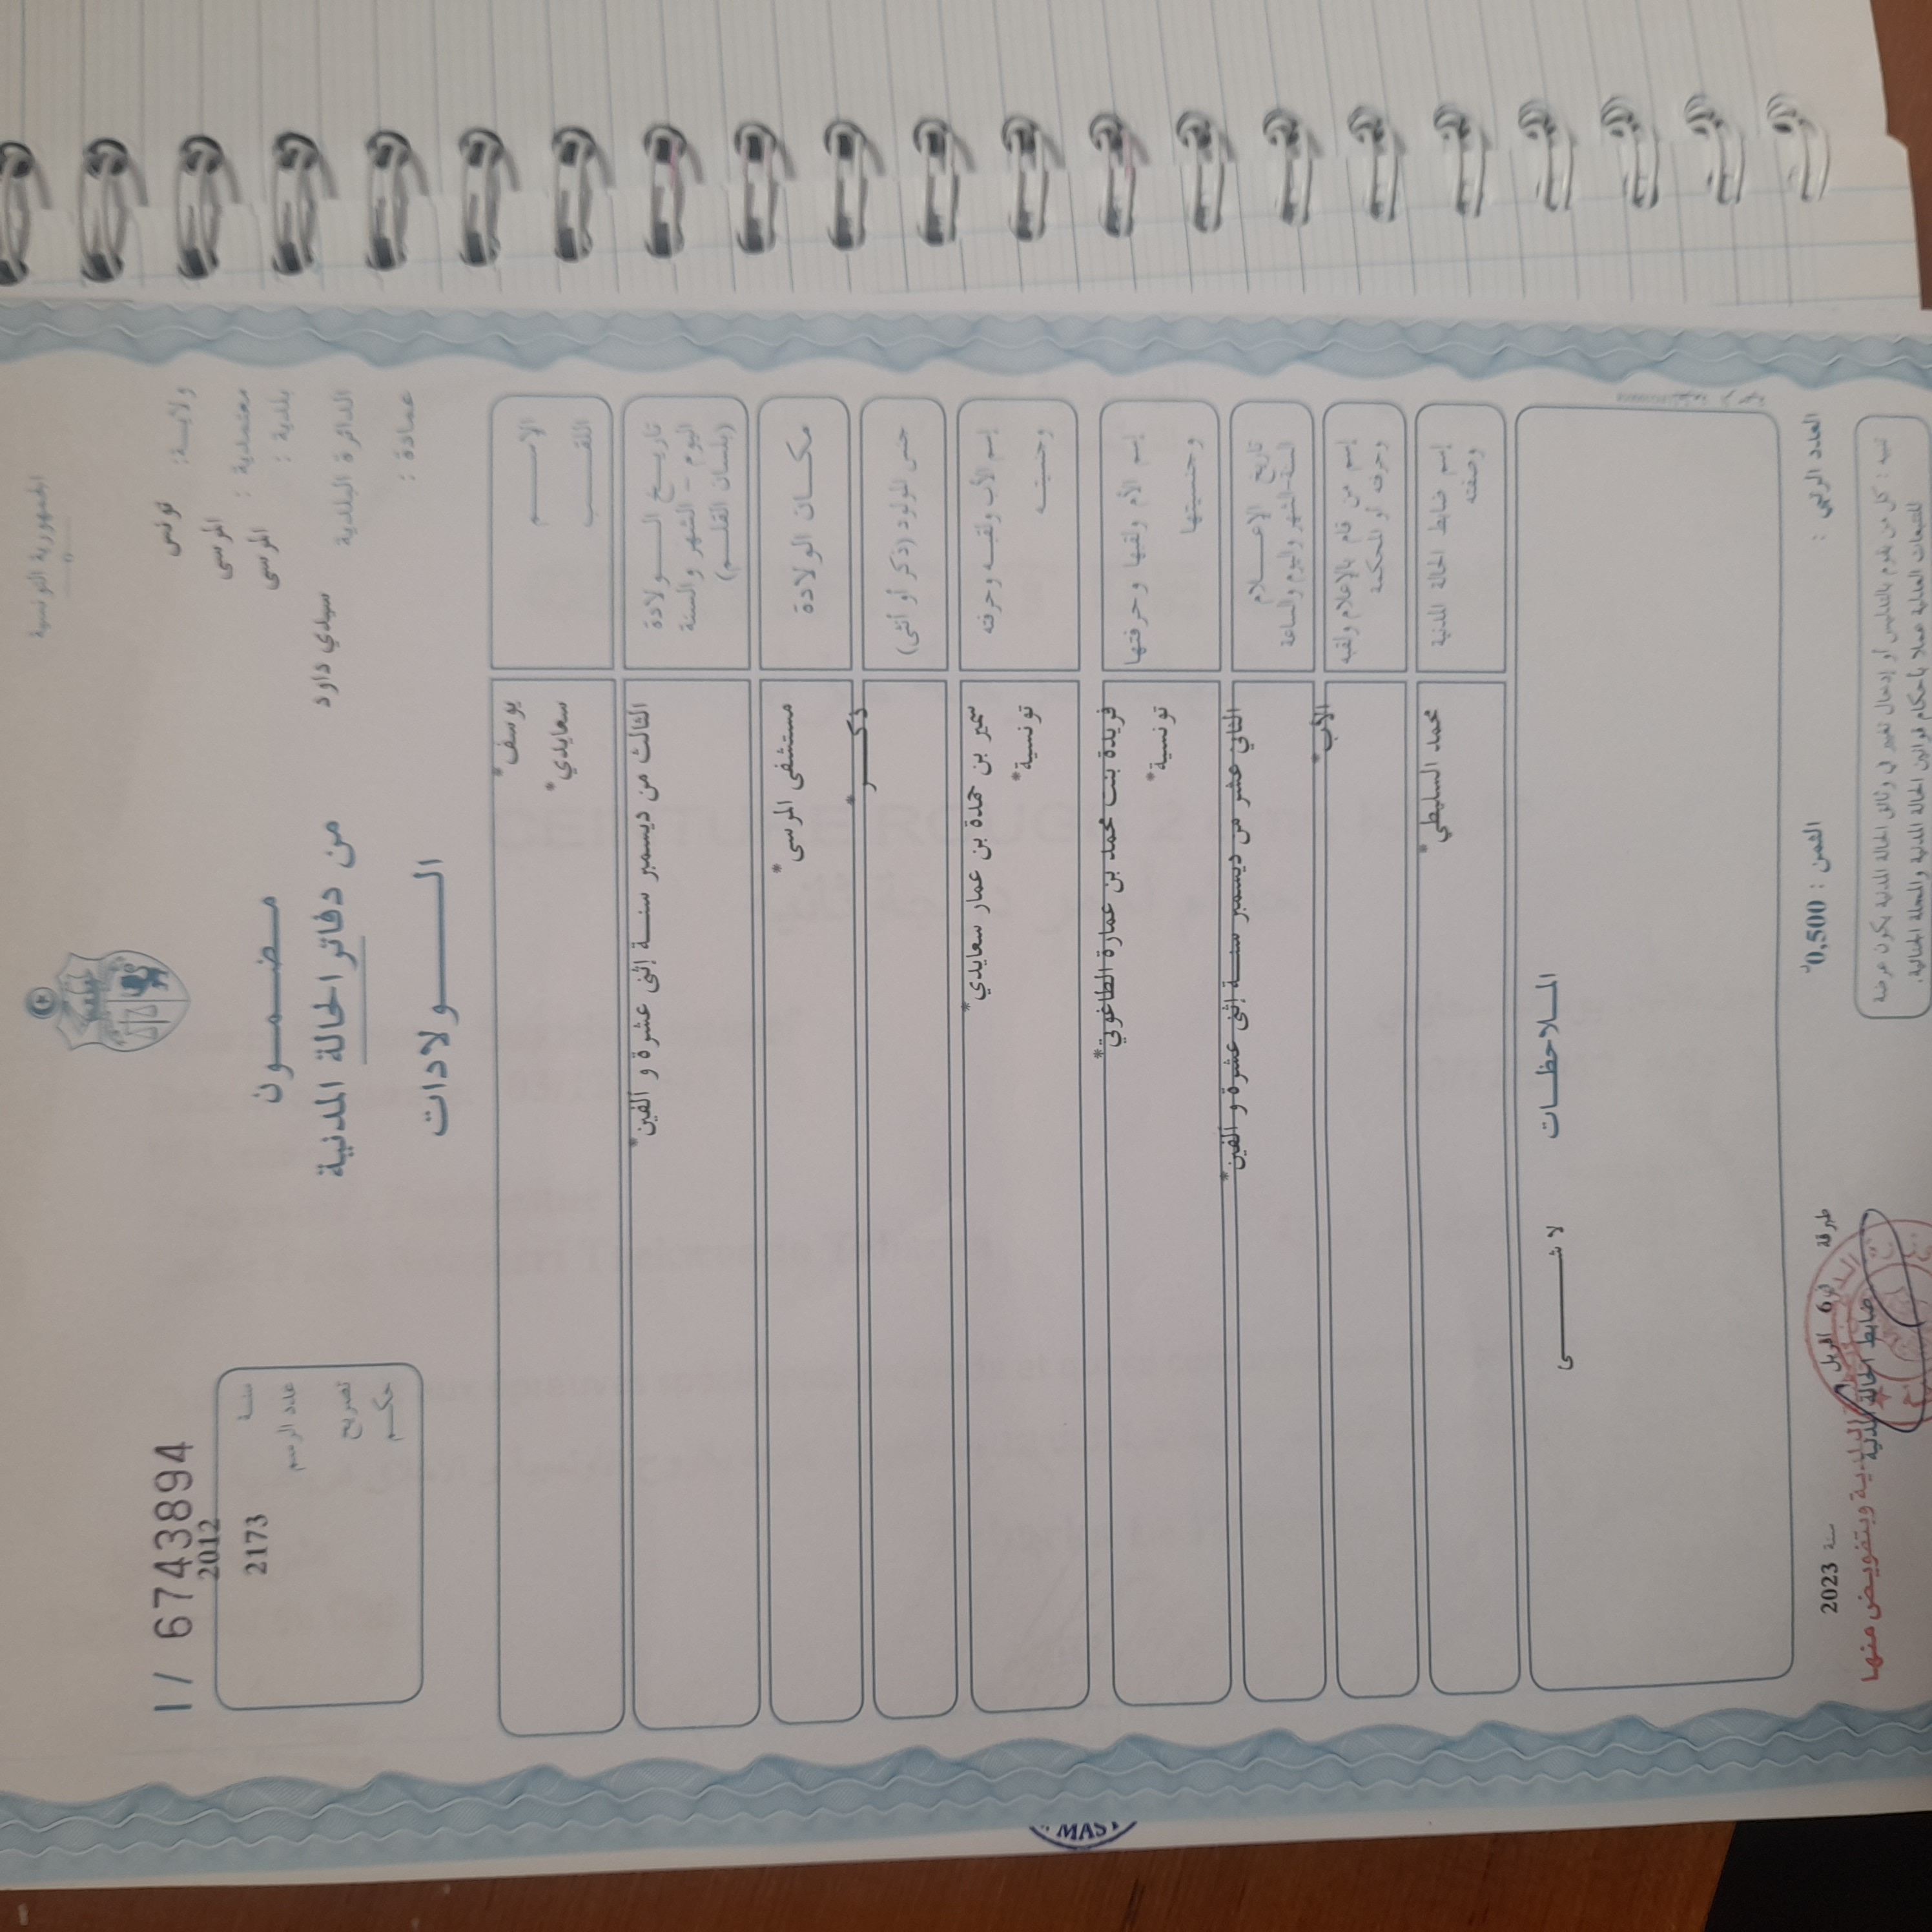 الجمهورية التونسية
ولايــة : تونس
معتمدية : المرسى
بلدية : المرسى
الدائرة البلدية سيدي داود
عمادة :
مـضـمـــون
من دفاتر الحالة المدنية
الـــــولادات
1/ 6743894
2012
سنــة
2173 عدد الرسم
تصريح
حكــم
الإســــــم يوسف*
اللقـــــب سعايدي*
تاريــــخ الـــــولادة
اليوم - الشهر والسنة
(بلسان القلــم)
الثالث من ديسمبر سنــة إثنى عشرة و ألفين*
مكـــان الولادة مستشفى المرسى*
جنس المولود (ذكر أو أنثى) ذكـــر*
إسم الأب ولقبــه وحرفته سمير بن حمدة بن عمار سعايدي*
وجنسيتــه تونسية*
إسم الأم ولقبها وحرفتها فريدة بنت محمد بن عمارة الطاغوتي*
وجنسيتها تونسية*
تاريخ الإعـــلام
السنة-الشهر واليوم والساعة
الثاني عشر من ديسمبر سنــة إثنى عشرة و ألفين*
إسم من قام بالإعلام ولقبه
وحرفته أو المحكمة
الأب*
إسم ضابط الحالة المدنية
وصفته
محمد السليطي*
المـــلاحظـــات
لا شـــــــى
العدد الرتبي :
الثمن : 0,500د
طبرقة في 6 افريل سنة 2023
ضابط الحالة المدنية
وبتفويض منها
تنبيه : كل من يقوم بالتدليس أو إدخال تغيير في وثائق الحالة المدنية يكون عرضة
للتتبعات العدلية عملا بأحكام قوانين الحالة المدنية والمجلة الجنائية.
CEINTURE ROUGE 2
MAS